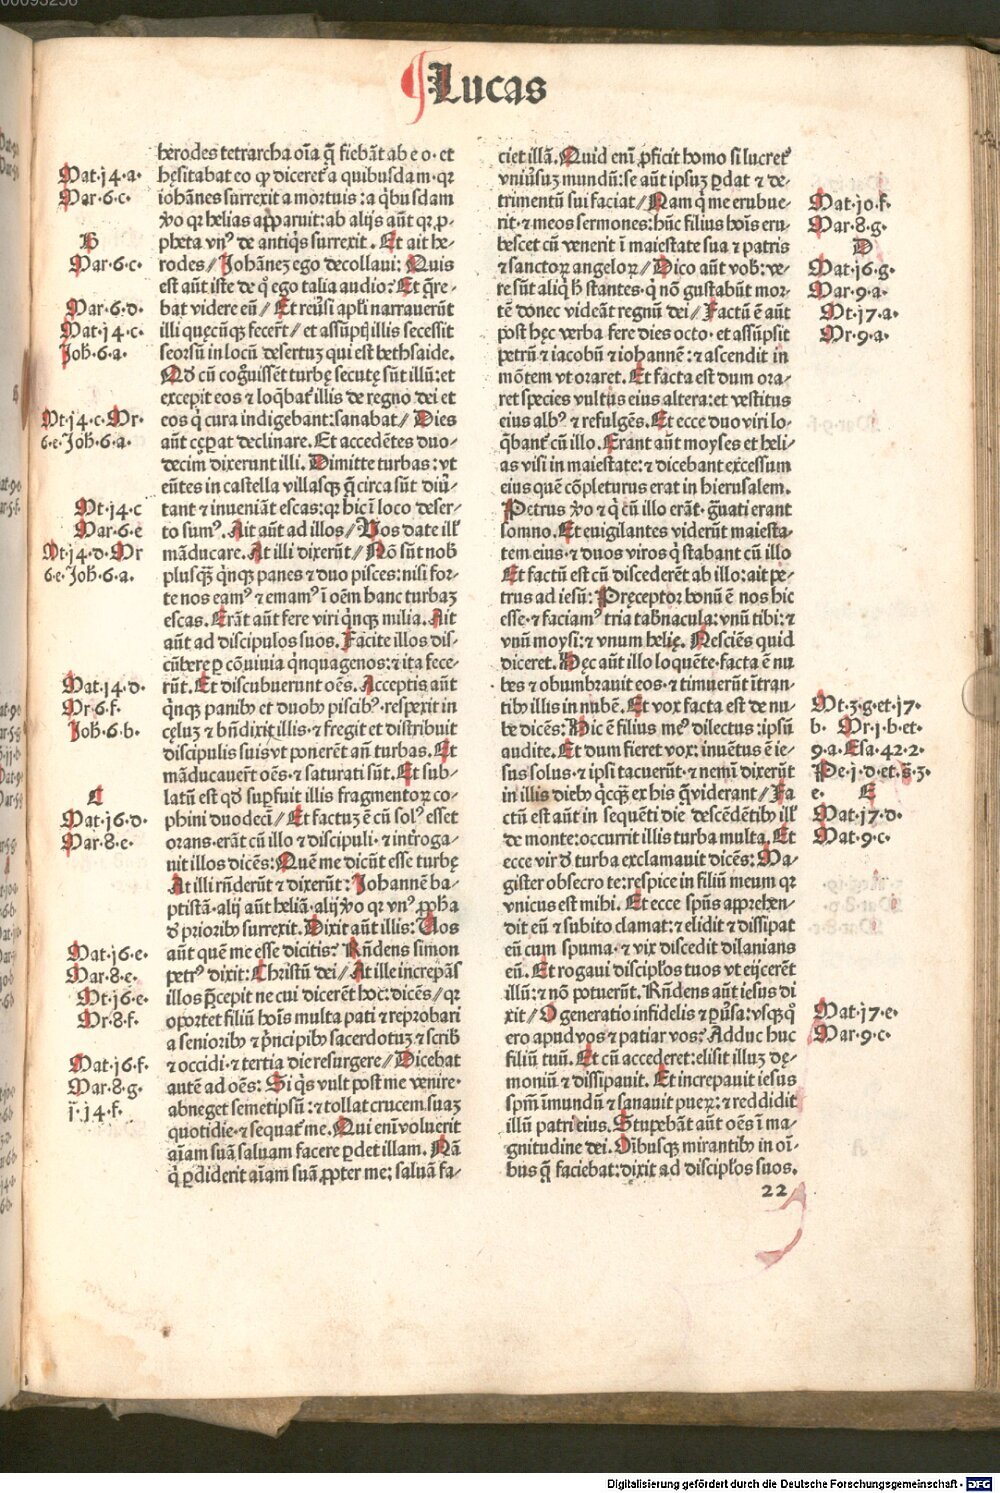 Lucas
herodes tetrarcha oĩa q̃ fiebãt ab eo. et
hęsitabat eo ꝙ diceret̃ a quibusdam. qꝛ
iohãnes surrexit a mortuis: a q̇busdam
ṽo qꝛ helias apparuit: ab alijs aũt qꝛ ꝓ-
pheta vnꝰ de antiq̇s surrexit. Et ait he-
rodes/ Johãnez ego decollaui: Quis
est aũt iste de q̇ ego talia audio? Et q̃re-
bat videre eũ/ Et reũsi apl̃i narrauerũt
illi quęcũqꝫ fecer̃t/ et assũptꝭ illis secessit
seorsũ in locũ desertuz qui est bethsaide.
Qđ cũ cog̃uissẽt turbę secutę sũt illũ: et
excepit eos ⁊ loq̃bat̃ illis de regno dei et
eos q̇ cura indigebant: sanabat/ Dies
aũt cęperat declinare. Et accedẽtes duo-
decim dixerunt illi. Dimitte turbas: vt
eũtes in castella villasqꝫ q̃ circa sũt diũ-
tant ⁊ inueniãt escas: qꝛ hic ĩ loco deser-
to sumꝰ. Ait aũt ad illos/ Vos date illꝭ
mãducare. At illi dixerũt/ Nõ sũt nob̃
plusq̃ꝫ q̇nqꝫ panes ⁊ duo pisces: nisi for-
te nos eamꝰ ⁊ emamꝰ ĩ oẽm hanc turbaz
escas. Erãt aũt fere viri q̇nqꝫ milia. Ait
aũt ad discipulos suos. Facite illos dis-
cũbere ꝑ cõuiuia q̇nquagenos: ⁊ ita fece-
rũt. Et discubuerunt oẽs. Acceptis aũt
q̇nqꝫ panibꝰ et duobꝰ piscibꝰ. respexit in
cęluz ⁊ bñdixit illis: ⁊ fregit et distribuit
discipulis suis vt ponerẽt añ turbas. Et
mãducauer̃t oẽs. ⁊ saturati sũt. Et sub-
latũ est qđ suꝑfuit illis fragmentoꝝ co-
phini duodecĩ/ Et factuz ẽ cũ solꝰ esset
orans. erãt cũ illo ⁊ discipuli. ⁊ int̃roga-
uit illos dicẽs: Quẽ me dicũt esse turbę
At illi rñderũt ⁊ dixerũt: Johannẽ ba-
ptistã. alij aũt heliã. alij ṽo qꝛ vnꝰ ꝓpha
đ prioribꝰ surrexit. Dixit aũt illis: Vos
aũt quẽ me esse dicitis? Rñdens simon
petrꝰ dixit: Christũ dei/ At ille increpãs
illos p̃cepit ne cui dicerẽt hoc: dicẽs/ qꝛ
oportet filiũ hoĩs multa pati ⁊ reprobari
a senioribꝰ ⁊ p̃ncipibꝰ sacerdotuz ⁊ scribꝭ
⁊ occidi. ⁊ tertia die resurgere/ Dicebat
autẽ ad oẽs: Si q̇s vult post me venire.
abneget semetipsũ: ⁊ tollat crucem suaz
quotidie. ⁊ sequat̃ me. Qui enĩ voluerit
aĩam suã saluam facere ꝑdet illam. Nã
q̇ ꝑdiderit aĩam suã ꝓpter me; saluã fa-
ciet illã. Quid enĩ ꝓficit homo si lucret̃
vniũsuz mundũ: se aũt ipsuz ꝑdat ⁊ de-
trimentũ sui faciat/ Nam q̇ me erubue-
rit. ⁊ meos sermones: hũc filius hoĩs eru-
bescet cũ venerit ĩ maiestate sua ⁊ patris
⁊ sanctoꝝ angeloꝝ/ Dico aũt vob̃: ve-
re sũt aliq̇ h̃ stantes. q̇ nõ gustabũt mor-
tẽ donec videãt regnũ dei/ Factũ ẽ aũt
post hęc verba fere dies octo. et assũpsit
petrũ ⁊ iacobũ ⁊ iohannẽ: ⁊ ascendit in
mõtem vt oraret. Et facta est dum ora-
ret species vultus eius altera: et vestitus
eius albꝰ ⁊ refulgẽs. Et ecce duo viri lo-
q̃bant̃ cũ illo. Erant aũt moyses et heli-
as visi in maiestate: ⁊ dicebant excessum
eius quẽ cõpleturus erat in hierusalem.
Petrus ṽo ⁊ q̇ cũ illo erãt. g̃uati erant
somno. Et euigilantes viderũt maiesta-
tem eius. ⁊ duos viros q̇ stabant cũ illo
Et factũ est cũ discederẽt ab illo: ait pe-
trus ad iesũ: Pręceptor bonũ ẽ nos hic
esse. ⁊ faciamꝰ tria tab̃nacula: vnũ tibi: ⁊
vnũ moysi: ⁊ vnum helię. Nesciẽs quid
diceret. Hęc aũt illo loquẽte. facta ẽ nu
bes ⁊ obumbrauit eos. ⁊ timuerũt ĩtran-
tibꝰ illis in nubẽ. Et vox facta est de nu-
be dicẽs: Hic ẽ filius meꝰ dilectus: ipsũ
audite. Et dum fieret vox: inuẽtus ẽ ie-
sus solus. ⁊ ipsi tacuerũt. ⁊ nemĩ dixerũt
in illis diebꝰ q̇cq̃ꝫ ex his q̃ viderant/ Fa
ctũ est aũt in sequẽti die descẽdẽtibꝰ illꝭ
de monte: occurrit illis turba multa. Et
ecce vir đ turba exclamauit dicẽs: Ma-
gister obsecro te: respice in filiũ meum qꝛ
vnicus est mihi. Et ecce spũs apprehen-
dit eũ ⁊ subito clamat: ⁊ elidit ⁊ dissipat
eũ cum spuma. ⁊ vix discedit dilanians
eũ. Et rogaui discipl̃os tuos vt eijcerẽt
illũ: ⁊ nõ potuerũt. Rñdens aũt iesus di
xit/ O generatio infidelis ⁊ ꝑũsa: vsqꝫ q̊
ero apud vos ⁊ patiar vos? Adduc huc
filiũ tuũ. Et cũ accederet: elisit illuz dę-
moniũ ⁊ dissipauit. Et increpauit iesus
spm̃ ĩmundũ ⁊ sanauit pueꝝ: ⁊ reddidit
illũ patri eius. Stupebãt aũt oẽs ĩ ma-
gnitudine dei. Oĩbusqꝫ mirantibꝰ in oĩ-
bus q̃ faciebat: dixit ad discipl̃os suos.
22
Mat.j4.a.
Mar.6.c.
B
Mar.6.c.
Mar.6.d.
Mat.j4.c.
Joh.6.a.
Mt.j4.c.Mr.
6.e.Joh.6.a.
Mt.j4.c
Mar.6.e
Mt.j4.d.Mr
6.e.Joh.6.a.
Mat.j4.d.
Mr.6.f.
Joh.6.b.
C
Mat.j6.d.
Mar.8.e.
Mat.j6.e.
Mar.8.e.
Mt.j6.e.
Mr.8.f.
Mat.j6.f.
Mar.8.g.
j.j4.f.
Mat.jo.f.
Mar.8.g.
D
Mat.j6.g.
Mar.9.a.
Mt.j7.a.
Mr.9.a.
Mt.3.g.et.j7.
b. Mr.j.b.et.
9.a.Esa.42.2.
Pe.j.d.et.s̃.3.
e. E
Mat.j7.d.
Mat.9.c.
Mat.j7.e.
Mar.9.c.
Digitalisierung gefördert durch die Deutsche Forschungsgemeinschaft - DFG